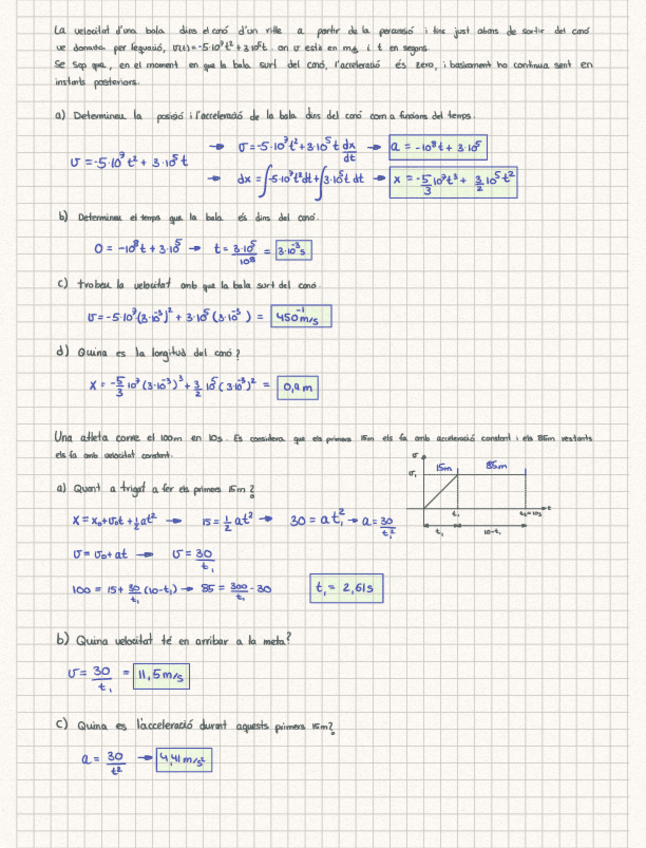 La velocitat d'una bala dins el canó d'un rifle a partir de la percussió i fins just abans de sortir del canó
ve donada per l'equació, v(t)=-5·10⁷t²+3·10⁵t. on v està en m/s i t en segons.
Se sap que, en el moment en que la bala surt del canó, l'acceleració és zero, i bàsicament ho continua sent en
instants posteriors.
a) Determineu la posició i l'acceleració de la bala dins del canó com a funcions del temps.
v=-5·10⁷t²+3·10⁵t
→ v=-5·10⁷t²+3·10⁵t dx/dt → a=-10⁸t+3·10⁵
→ dx=∫-5·10⁷t²dt+∫3·10⁵t dt → x=-5/3 10⁷t³+3/2 10⁵t²
b) Determineu el temps que la bala és dins del canó.
0=-10⁸t+3·10⁵ → t=3·10⁵/10⁸ = 3·10⁻³s
c) trobeu la velocitat amb que la bala surt del canó.
v=-5·10⁷(3·10⁻³)²+3·10⁵(3·10⁻³) = 450 m/s⁻¹
d) Quina es la longitud del canó?
x=-5/3 10⁷(3·10⁻³)³+3/2 10⁵(3·10⁻³)² = 0,9m
Una atleta corre el 100m en 10s. Es considera que els primers 15m els fa amb acceleració constant i els 85m restants
els fa amb velocitat constant.
v
v₁
15m 85m
t₁ t₂=10s t
t₁ 10-t₁
a) Quant a trigat a fer els primers 15m?
x=x₀+v₀t+½at² → 15=½at² → 30=at₁² → a=30/t₁²
v=v₀+at → v=30/t₁
100=15+30/t₁(10-t₁) → 85=300/t₁-30 t₁=2,61s
b) Quina velocitat té en arribar a la meta?
v=30/t₁ = 11,5m/s
c) Quina es l'acceleració durant aquests primers 15m?
a=30/t² → 4,41m/s²